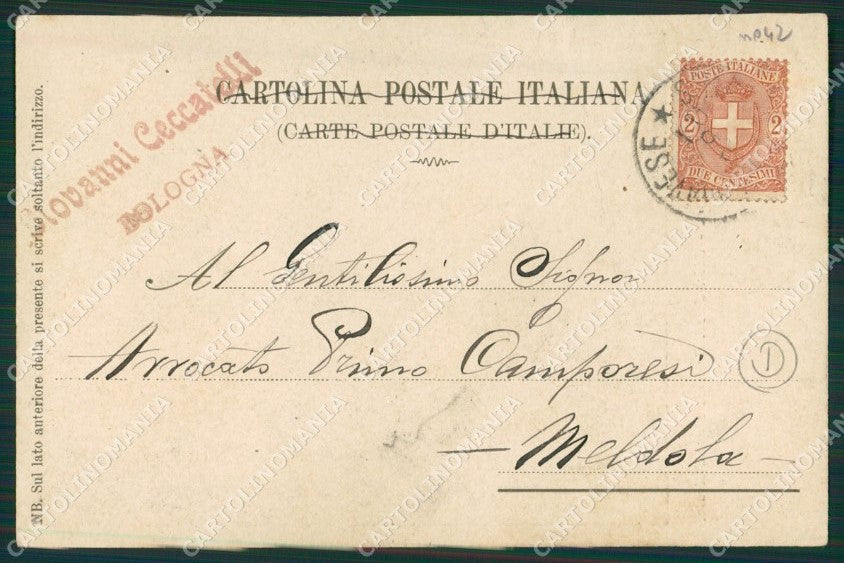 nº42
CARTOLINA POSTALE ITALIANA
(CARTE POSTALE D'ITALIE).
POSTE ITALIANE
2 2
DUE CENTESIMI
Giovanni Ceccatelli
BOLOGNA
Al Gentilissimo Signor
Avvocato Primo Camporesi
1
— Meldola —
NB. Sul lato anteriore della presente si scrive soltanto l'indirizzo.
CARTOLINOMANIA